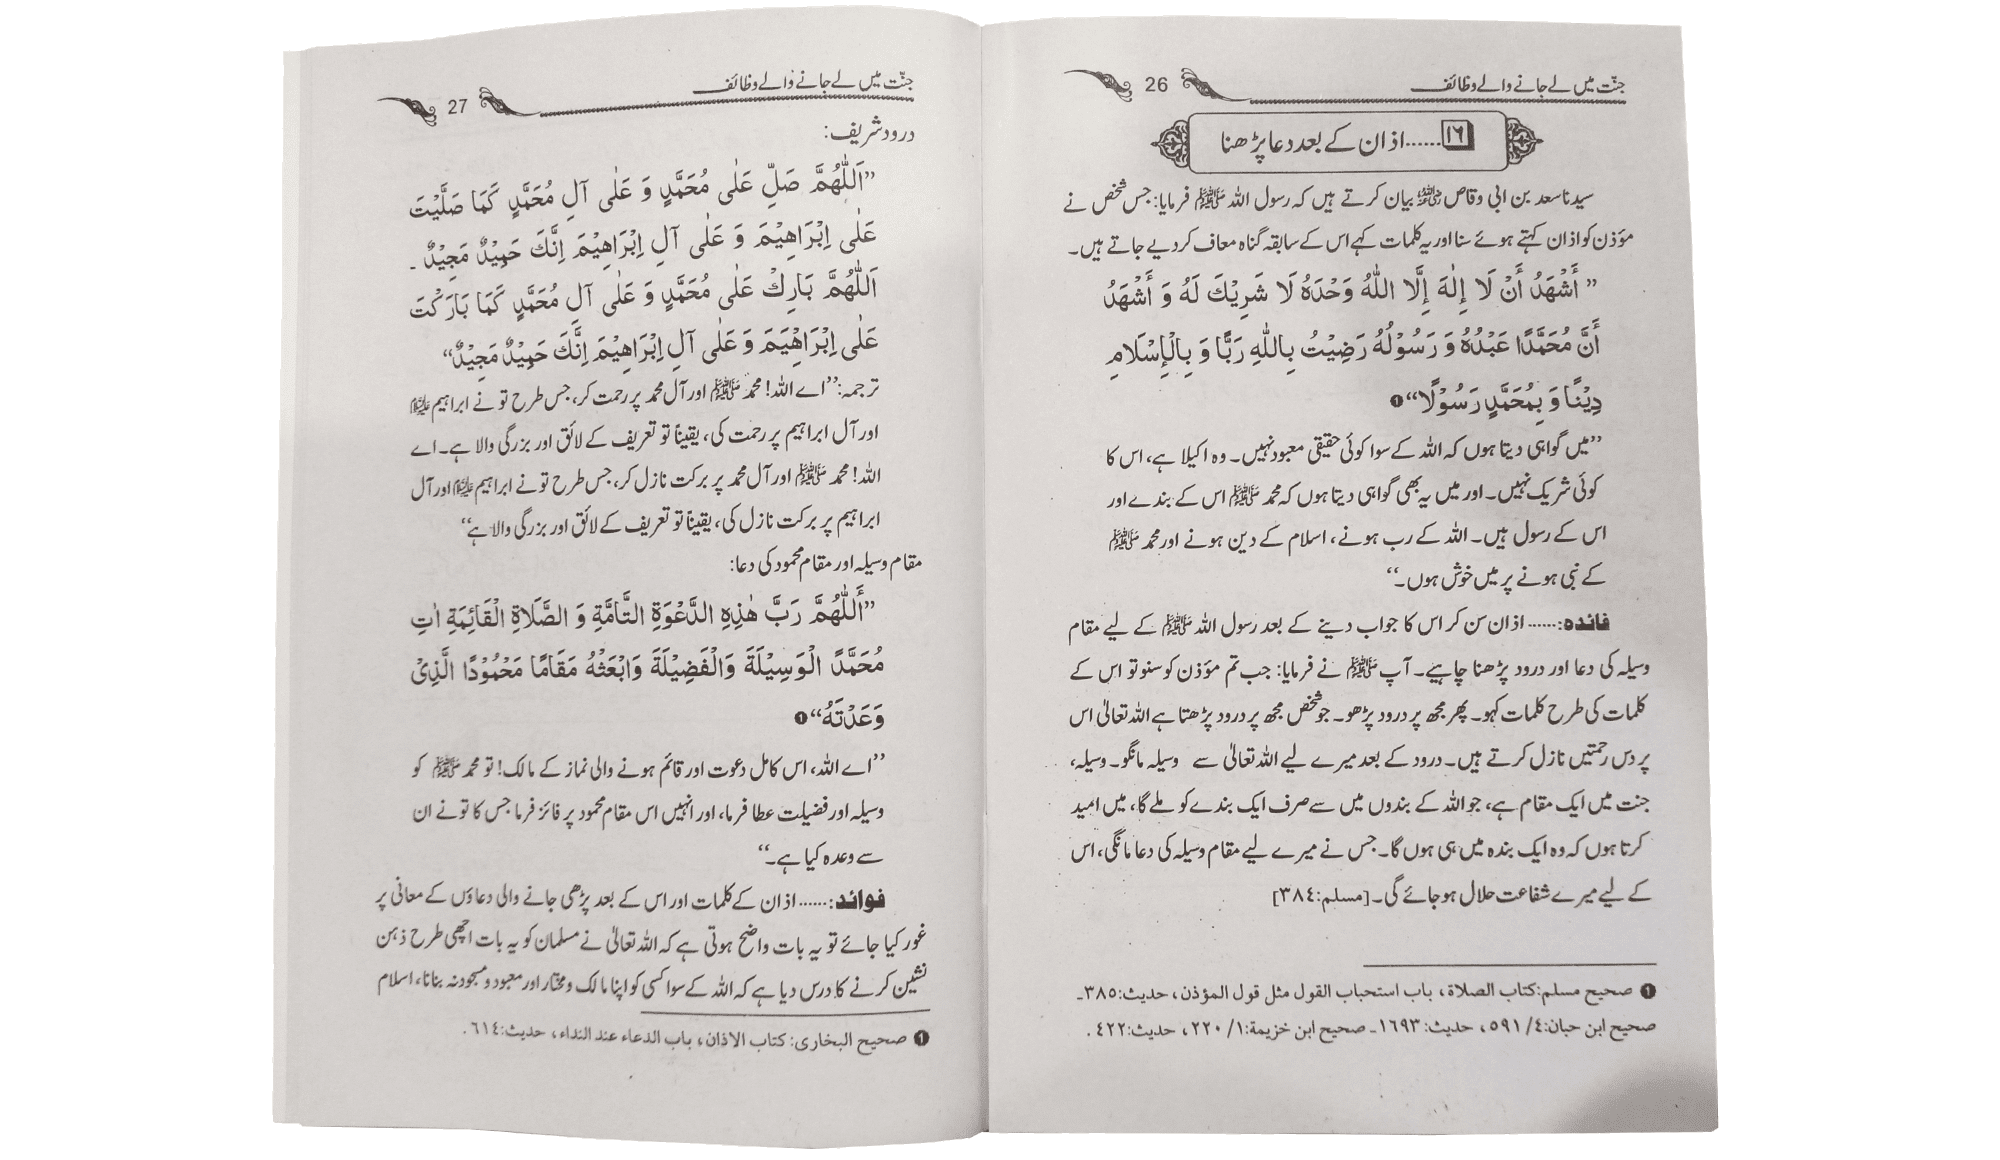 جنّت میں لے جانے والے وظائف 26
۱۶......اذان کے بعد دعا پڑھنا
سیدنا سعد بن ابی وقاص رضی اللہ عنہ بیان کرتے ہیں کہ رسول اللہ ﷺ فرمایا: جس شخص نے
مؤذن کو اذان کہتے ہوئے سنا اور یہ کلمات کہے اس کے سابقہ گناہ معاف کر دیے جاتے ہیں۔
”أَشْهَدُ أَنْ لَا إِلٰهَ إِلَّا اللّٰهُ وَحْدَهُ لَا شَرِيْكَ لَهُ وَ أَشْهَدُ
أَنَّ مُحَمَّدًا عَبْدُهُ وَ رَسُوْلُهُ رَضِيْتُ بِاللّٰهِ رَبًّا وَ بِالْإِسْلَامِ
دِيْنًا وَ بِمُحَمَّدٍ رَسُوْلًا“❶
”میں گواہی دیتا ہوں کہ اللہ کے سوا کوئی حقیقی معبود نہیں۔ وہ اکیلا ہے، اس کا
کوئی شریک نہیں۔ اور میں یہ بھی گواہی دیتا ہوں کہ محمد ﷺ اس کے بندے اور
اس کے رسول ہیں۔ اللہ کے رب ہونے، اسلام کے دین ہونے اور محمد ﷺ
کے نبی ہونے پر میں خوش ہوں۔“
فائدہ:...... اذان سن کر اس کا جواب دینے کے بعد رسول اللہ ﷺ کے لیے مقام
وسیلہ کی دعا اور درود پڑھنا چاہیے۔ آپ ﷺ نے فرمایا: جب تم مؤذن کو سنو تو اس کے
کلمات کی طرح کلمات کہو۔ پھر مجھ پر درود پڑھو۔ جو شخص مجھ پر درود پڑھتا ہے اللہ تعالیٰ اس
پر دس رحمتیں نازل کرتے ہیں۔ درود کے بعد میرے لیے اللہ تعالیٰ سے وسیلہ مانگو۔ وسیلہ،
جنت میں ایک مقام ہے، جو اللہ کے بندوں میں سے صرف ایک بندے کو ملے گا، میں امید
کرتا ہوں کہ وہ ایک بندہ میں ہی ہوں گا۔ جس نے میرے لیے مقام وسیلہ کی دعا مانگی، اس
کے لیے میرے شفاعت حلال ہو جائے گی۔ [مسلم: ٣٨٤]
❶ صحیح مسلم: کتاب الصلاة، باب استحباب القول مثل قول المؤذن، حدیث: ٣٨٥۔
صحیح ابن حبان: ٤/ ٥٩١، حدیث: ١٦٩٣۔ صحیح ابن خزیمة: ١/ ٢٢٠، حدیث: ٤٢٢.
جنّت میں لے جانے والے وظائف 27
درود شریف:
”اَللّٰهُمَّ صَلِّ عَلٰى مُحَمَّدٍ وَ عَلٰى آلِ مُحَمَّدٍ كَمَا صَلَّيْتَ
عَلٰى إِبْرَاهِيْمَ وَ عَلٰى آلِ إِبْرَاهِيْمَ اِنَّكَ حَمِيْدٌ مَجِيْدٌ ۔
اَللّٰهُمَّ بَارِكْ عَلٰى مُحَمَّدٍ وَ عَلٰى آلِ مُحَمَّدٍ كَمَا بَارَكْتَ
عَلٰى إِبْرَاهِيْمَ وَ عَلٰى آلِ إِبْرَاهِيْمَ اِنَّكَ حَمِيْدٌ مَجِيْدٌ“
ترجمہ: ”اے اللہ! محمد ﷺ اور آل محمد پر رحمت کر، جس طرح تو نے ابراہیم علیہ السلام
اور آل ابراہیم پر رحمت کی، یقیناً تو تعریف کے لائق اور بزرگی والا ہے۔ اے
اللہ! محمد ﷺ اور آل محمد پر برکت نازل کر، جس طرح تو نے ابراہیم علیہ السلام اور آل
ابراہیم پر برکت نازل کی، یقیناً تو تعریف کے لائق اور بزرگی والا ہے“
مقام وسیلہ اور مقام محمود کی دعا:
”أَللّٰهُمَّ رَبَّ هٰذِهِ الدَّعْوَةِ التَّامَّةِ وَ الصَّلَاةِ الْقَائِمَةِ اٰتِ
مُحَمَّدًا الْوَسِيْلَةَ وَالْفَضِيْلَةَ وَابْعَثْهُ مَقَامًا مَحْمُوْدًا الَّذِيْ
وَعَدْتَهُ“❶
”اے اللہ، اس کامل دعوت اور قائم ہونے والی نماز کے مالک! تو محمد ﷺ کو
وسیلہ اور فضیلت عطا فرما، اور انہیں اس مقام محمود پر فائز فرما جس کا تو نے ان
سے وعدہ کیا ہے۔“
فوائد:...... اذان کے کلمات اور اس کے بعد پڑھی جانے والی دعاؤں کے معانی پر
غور کیا جائے تو یہ بات واضح ہوتی ہے کہ اللہ تعالیٰ نے مسلمان کو یہ بات اچھی طرح ذہن
نشین کرنے کا درس دیا ہے کہ اللہ کے سوا کسی کو اپنا مالک و مختار اور معبود و مسجود نہ بنانا، اسلام
❶ صحیح البخاری: کتاب الاذان، باب الدعاء عند النداء، حدیث: ٦١٤.